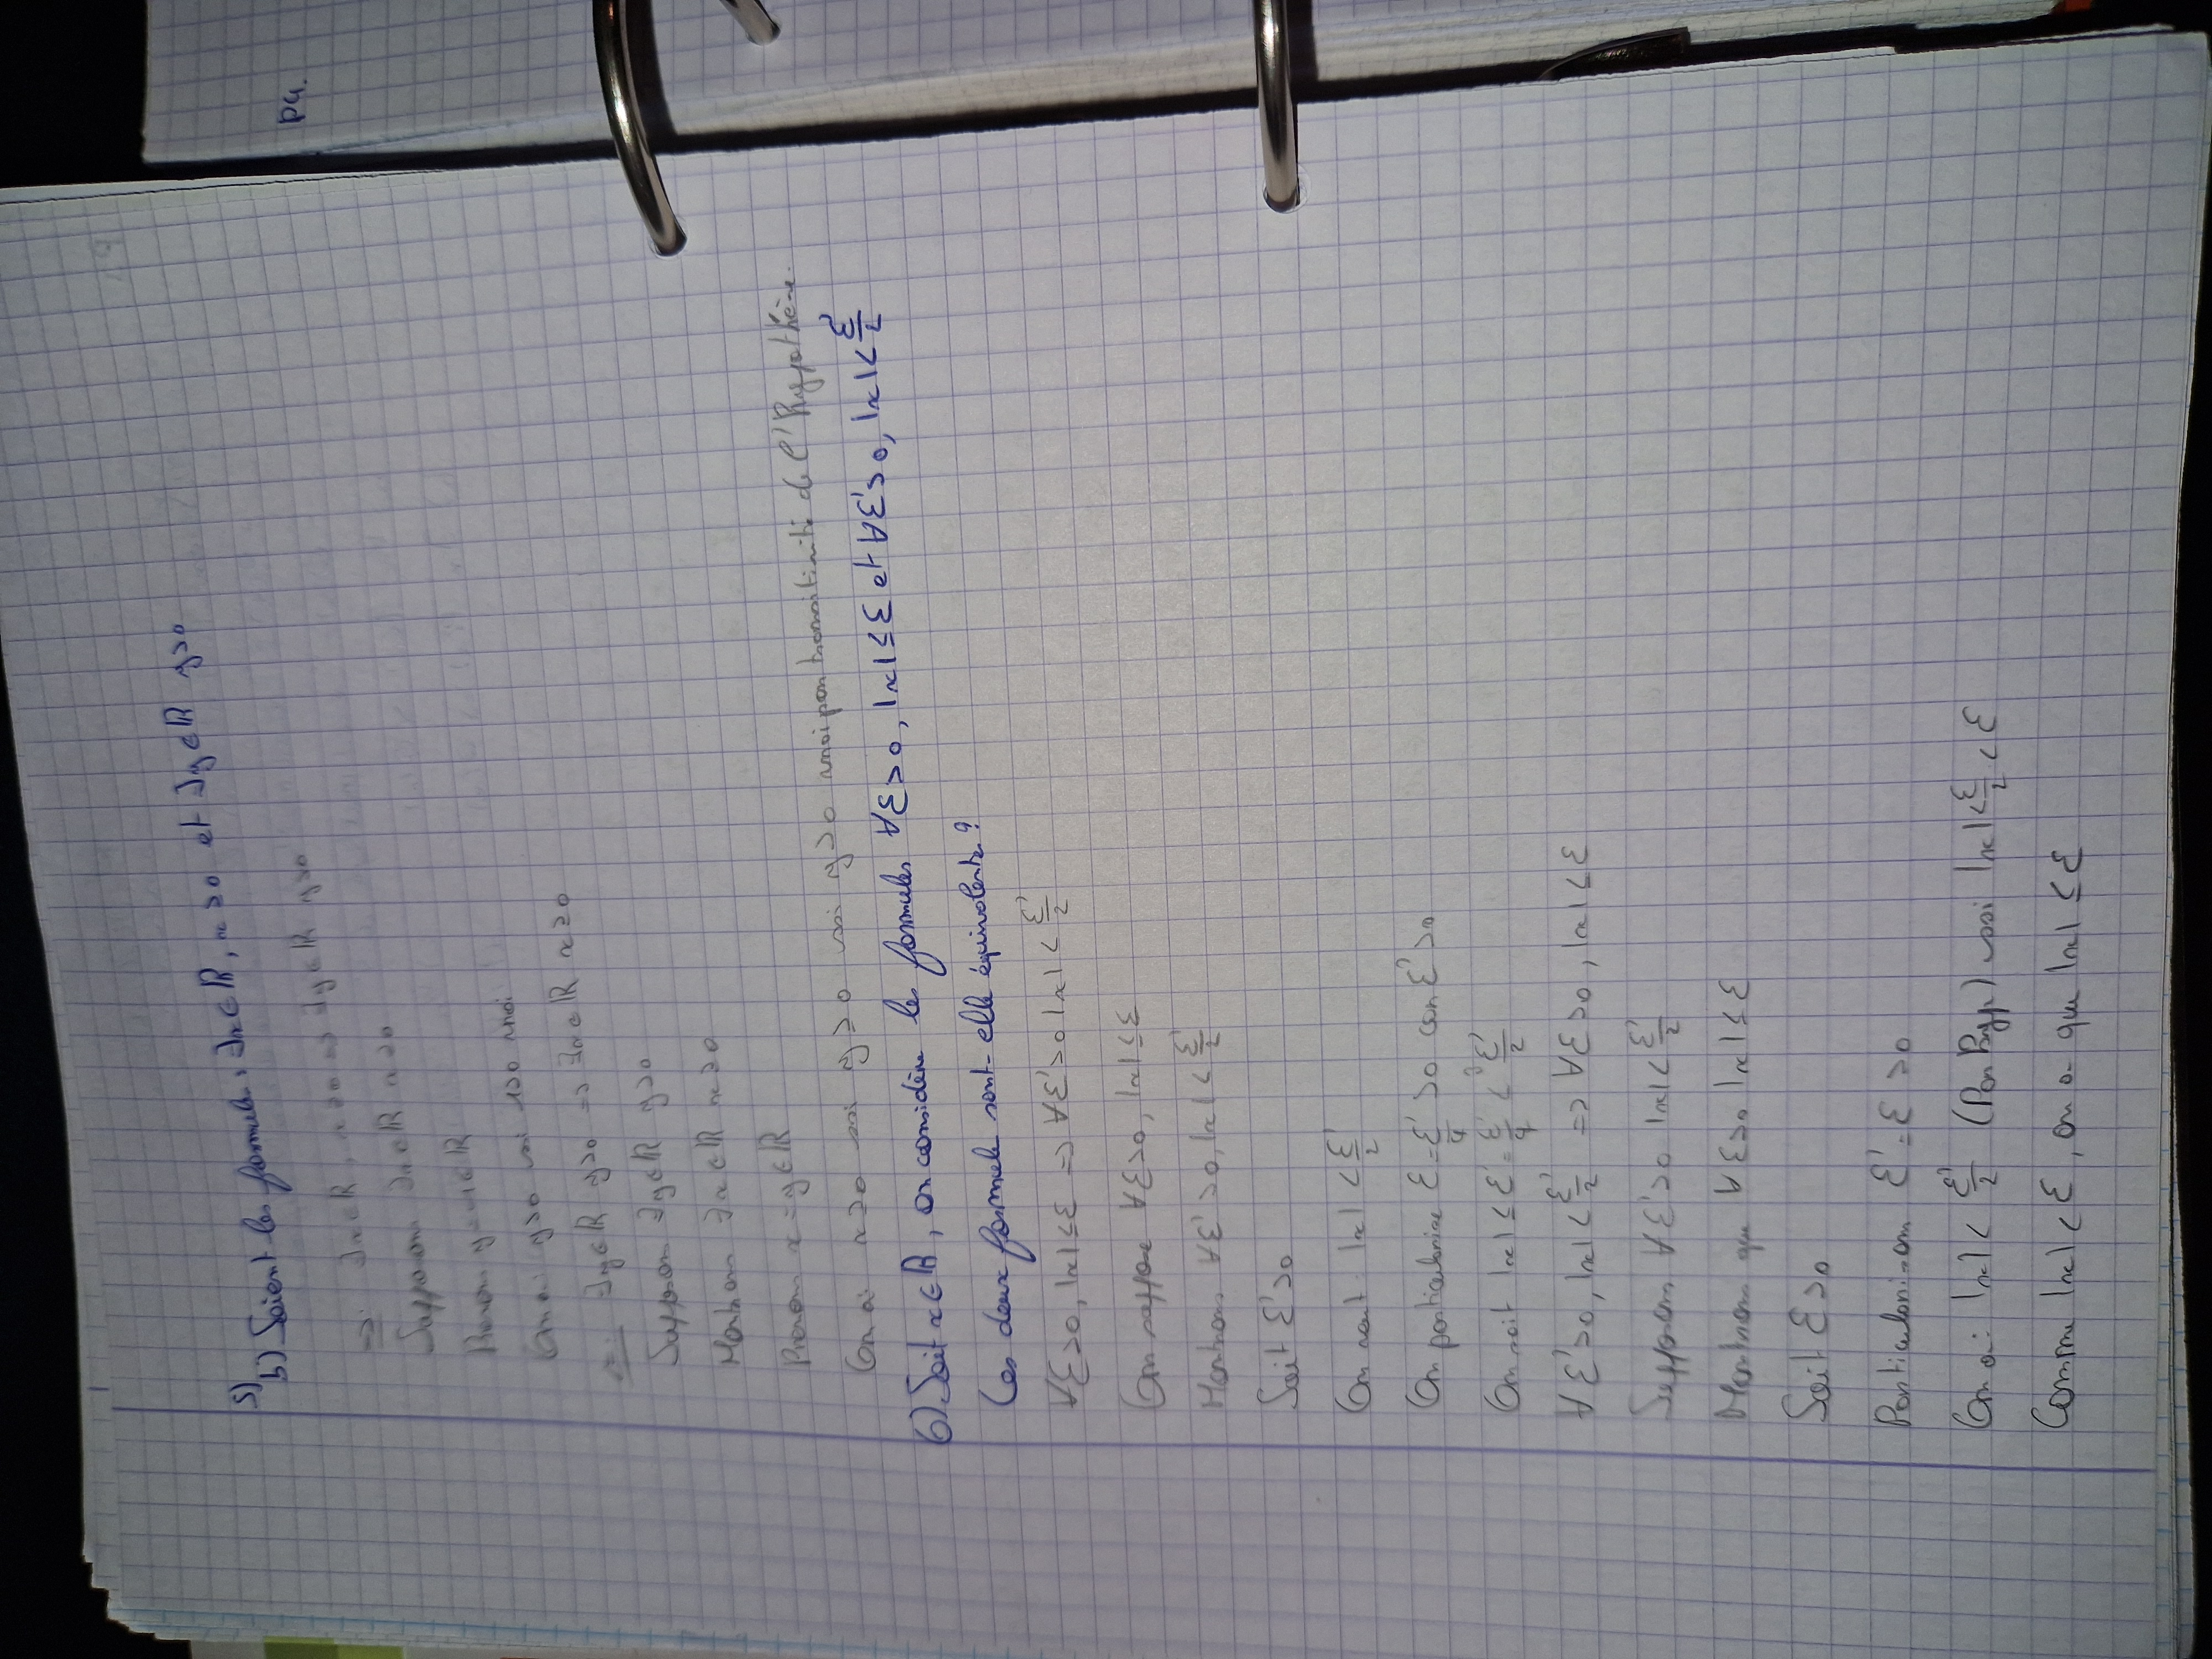 5)
b) Soient les formules : ∃x∈ℝ, x≥0 et ∃y∈ℝ y>0
=>: ∃x∈ℝ, x≥0 => ∃y∈ℝ y>0
Supposons ∃x∈ℝ x≥0
Prenons y=1∈ℝ
On a: y>0 ssi 1>0 vrai
<=: ∃y∈ℝ y>0 => ∃x∈ℝ x≥0
Supposons ∃y∈ℝ y>0
Montrons ∃x∈ℝ x≥0
Prenons x=y∈ℝ
On a: x≥0 ssi y≥0 ssi y>0 vrai par transitivité de l'hypothèse.
6) Soit x∈ℝ, on considère les formules ∀ε>0, |x|≤ε et ∀ε'>0, |x|<ε'/2
Ces deux formule sont-elle équivalente ?
∀ε>0, |x|≤ε => ∀ε'>0 |x|<ε'/2
On suppose ∀ε>0, |x|≤ε
Montrons ∀ε'>0, |x|<ε'/2
Soit ε'>0
On veut: |x|<ε'/2
On particularise ε=ε'/4 >0 car ε'>0
On sait |x|≤ε'=ε'/4 < ε'/2
∀ε'>0, |x|<ε'/2 => ∀ε>0, |x|≤ε
Supposons ∀ε'>0 |x|<ε'/2
Montrons que ∀ε>0 |x|≤ε
Soit ε>0
Particularisons ε'=ε >0
On a: |x|<ε'/2 (Par hyp) ssi |x|<ε/2<ε
Comme |x|<ε, on a que |x|≤ε
P4.